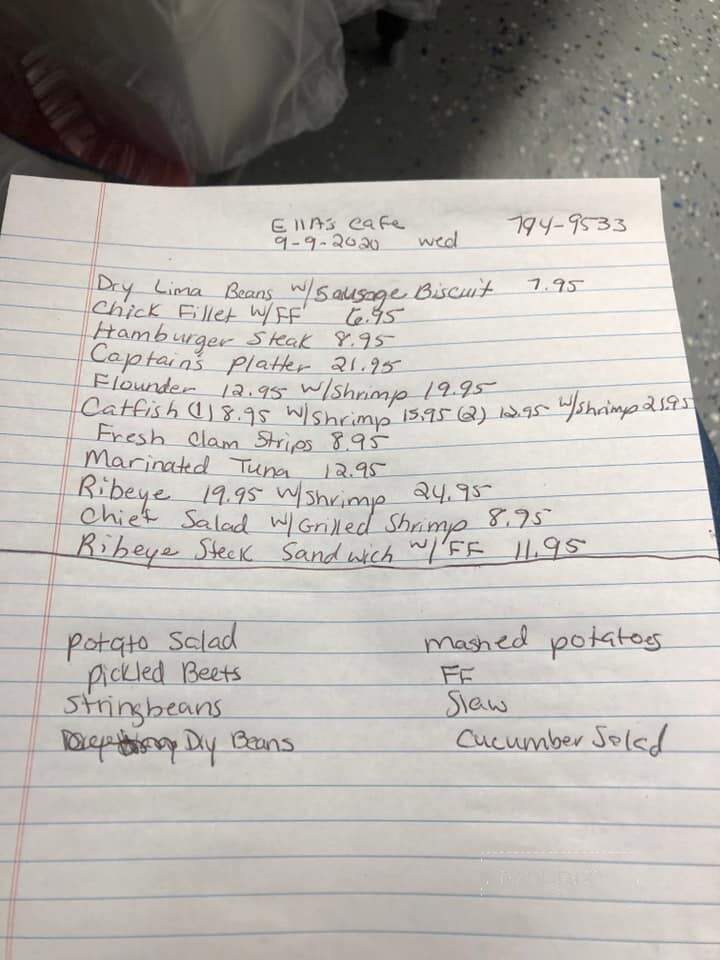 Ella's Cafe 794-9533
9-9-2020 wed
Dry Lima Beans w/Sausage Biscuit 7.95
Chick Fillet w/FF 6.95
Hamburger Steak 8.95
Captain's Platter 21.95
Flounder 12.95 w/Shrimp 19.95
Catfish (1) 8.95 w/Shrimp 15.95 (2) 12.95 w/Shrimp 21.95
Fresh Clam Strips 8.95
Marinated Tuna 12.95
Ribeye 19.95 w/Shrimp 24.95
Chief Salad w/Grilled Shrimp 8.95
Ribeye Steck Sandwich w/FF 11.95
potato Salad mashed potatoes
Pickled Beets FF
Stringbeans Slaw
Dry Beans Cucumber Salad